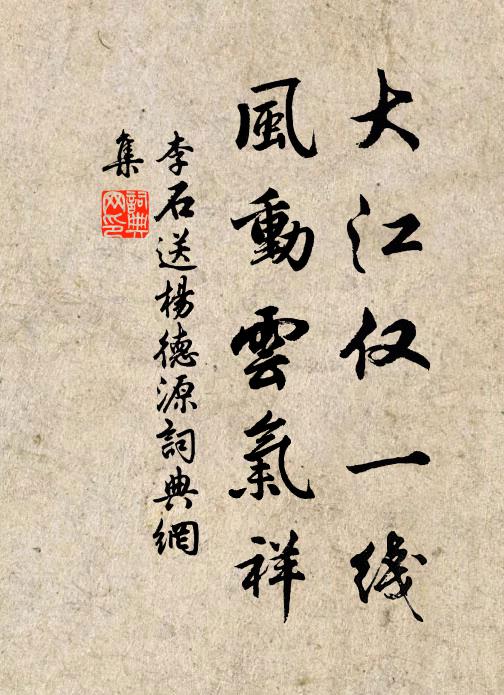 大江仅一线
風動雲氣祥
李石送楊德源詞典網
集
詞典网印